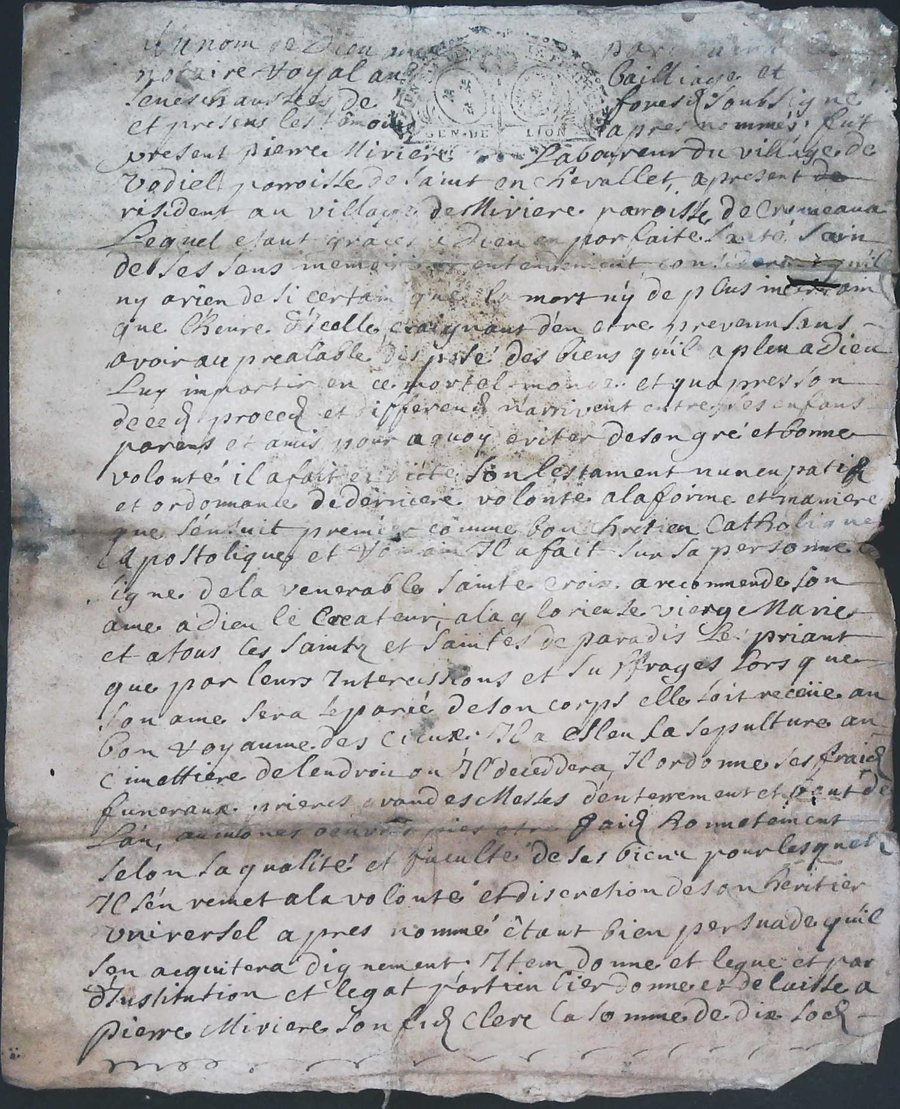 Au nom de Dieu par
notaire royal au bailliage et
seneschaussées de forest soubsigné
et presens les témoi apres nommés fut
GEN. DE LION
present pierre Miviere Laboureur du village de
Vediel parroisse de saint en chevallet, a present de
résident au village de Miviere parroisse de Cremeaux
Lequel etant graces a Dieu en parfaite santé, sain
de ses sens memoire entendement considerant qu'il
ny a rien de si certain que la mort n'y de plus incertain
que l'heure d'icelle craignant d'en etre prevenu sans
avoir au prealable disposé des biens qu'il a pleu a Dieu
Luy impartir en ce mortel monde et qu'apres son
décéd proced et differend n'arrivent entre ses enfans
parens et amis pour a quoy eviter de son gré et bonne
volonté il a fait son testament nuncupatif
et ordonnance de derniere volonté a la forme et maniere
que s'ensuit premier comme bon chretien Catholique
apostolique et Romain Il a fait sur sa personne le
signe de la venerable sainte croix a recommendé son
ame a Dieu le Createur, a la glorieuse vierge Marie
et a tous les saints et saintes de paradis Les priant
que par leurs Intercessions et suffrages lors que
son ame sera separée de son corps elle soit receüe au
bon royaume des cieux. Il a esleu sa sepulture au
cimettiere de lendroit ou Il deceddera, Il ordonne ses fraid
funeraux prieres grandes Messes d'enterrement et bout de
L'an, aumones oeuvres pies etre faid honnetement
selon sa qualité et faculté de ses bieux pour lesquels
Il s'en remet a la volonté et discretion de son héritier
universel apres nommé étant bien persuadé qu'il
s'en acquitera dignement Item donne et legue et par
d'Institution et legat particulier donne et delaisse a
pierre Miviere son fid clerc la somme de dix sod